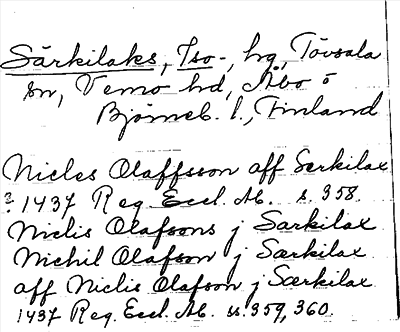 Särkilaks, Iso-, hg, Tövsala
sn, Vemo hd, Åbo o
Björneb. l., Finland
Nicles Olaffsson aff Serkilax
? 1437 Reg. Eccl. Ab. s. 358.
Niclis Olafsons j Sarkilax
Nichil Olafson j Særkilax
aff Niclis Olafson j Særkilax
1437 Reg. Eccl. Ab. ss. 359, 360.